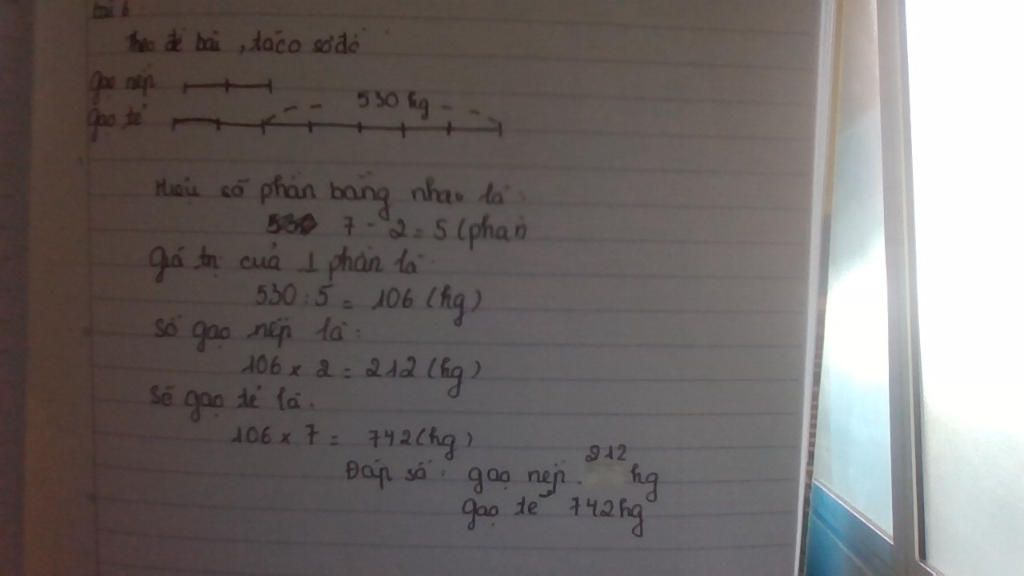 bài 6
Theo đề bài, ta có sơ đồ
gạo nếp
530 kg
gạo tẻ
Hiệu số phần bằng nhau là:
7 - 2 = 5 (phần
Giá trị của 1 phần là:
530 : 5 = 106 (kg)
Số gạo nếp là:
106 x 2 = 212 (kg)
Số gạo tẻ là.
106 x 7 = 742 (kg)
212
Đáp số: gạo nếp. kg
gạo tẻ 742 kg